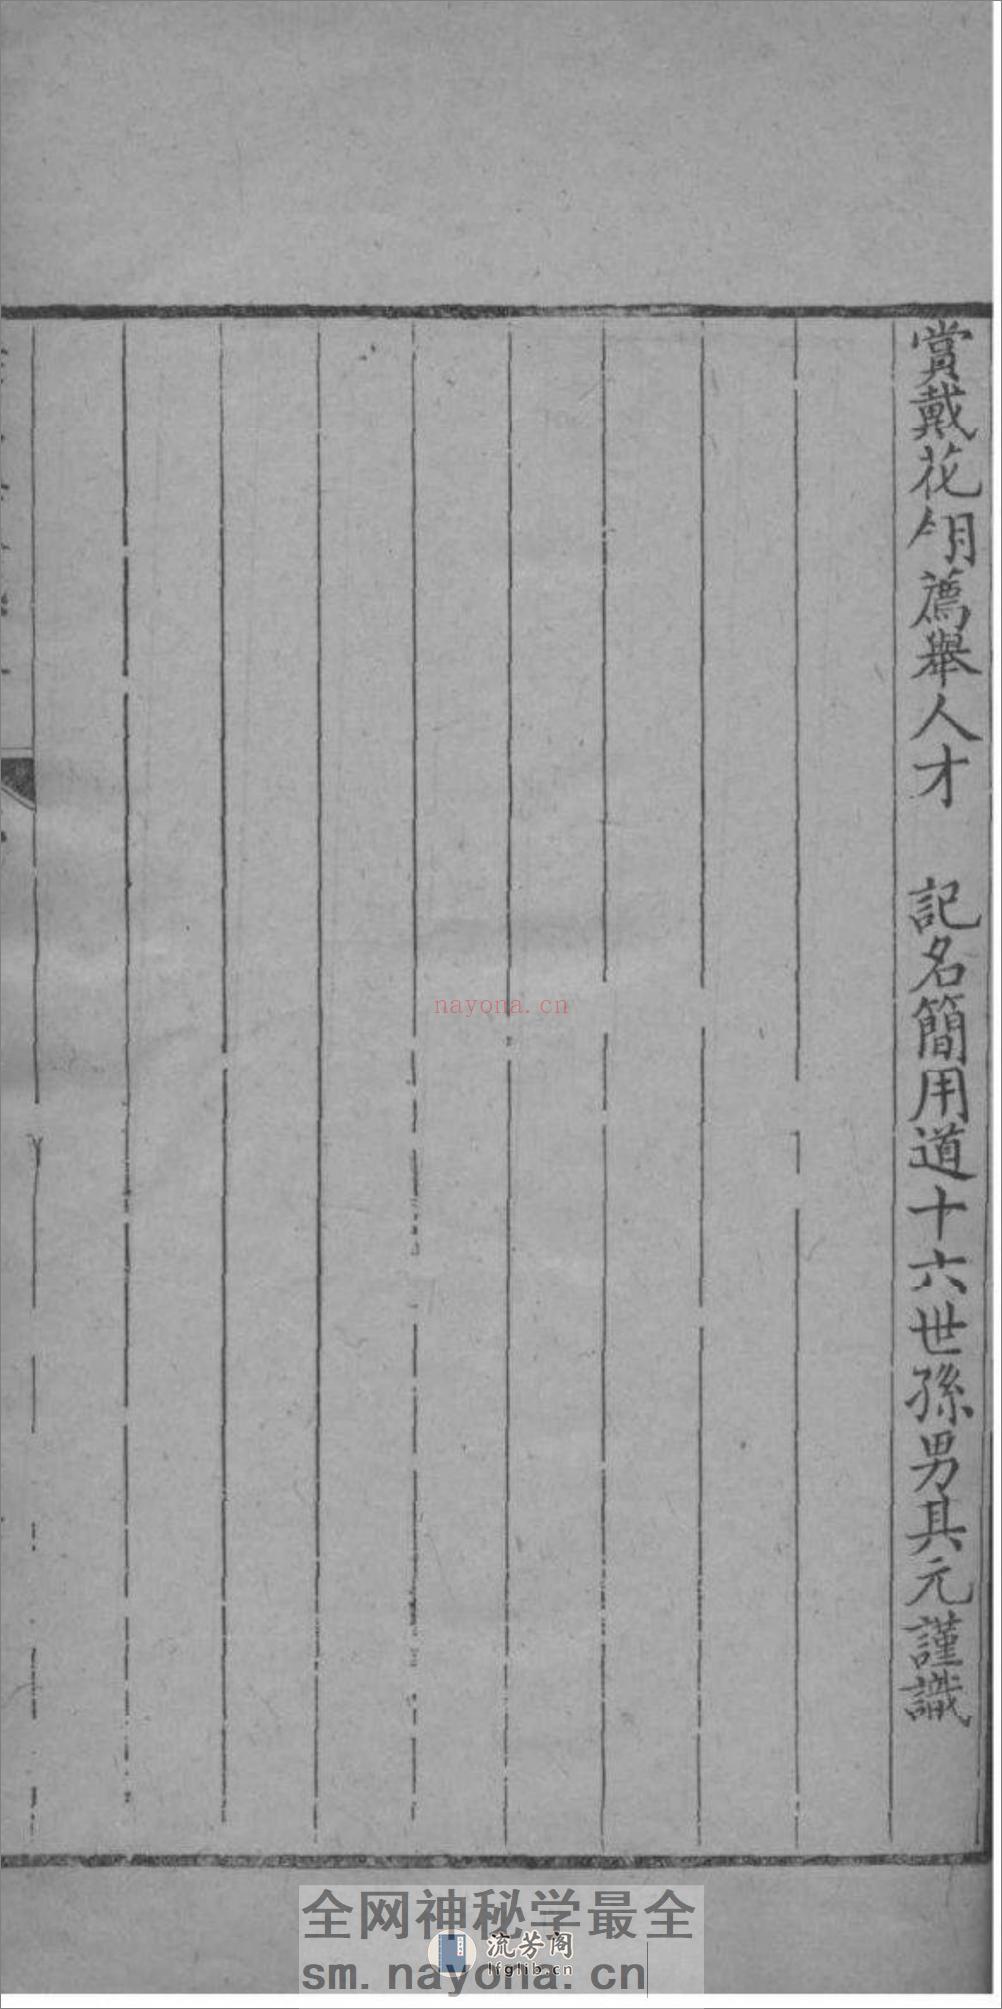 賞戴花翎薦舉人才　記名簡用道十六世孫男具元謹識
nayona.cn
全网神秘学最全
流芳阁
lfglib.cn
sm.nayona.cn